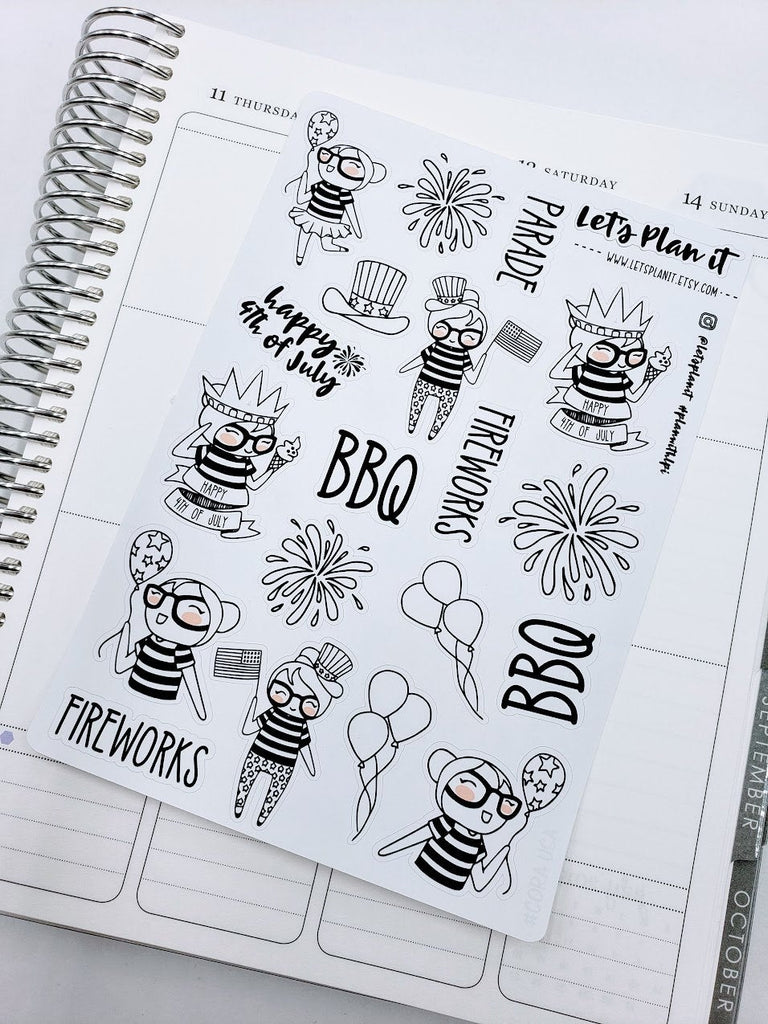 11 THURSDA
SATURDAY
14 SUNDAY
PARADE
Let's Plan it
WWW.LETSPLANIT.ETSY.COM
@letsplanit #planwithlpi
happy
4th of July
HAPPY
4TH OF JULY
FIREWORKS
BBQ
HAPPY
4TH OF JULY
BBQ
FIREWORKS
SEPTEMBER
OCTOBER